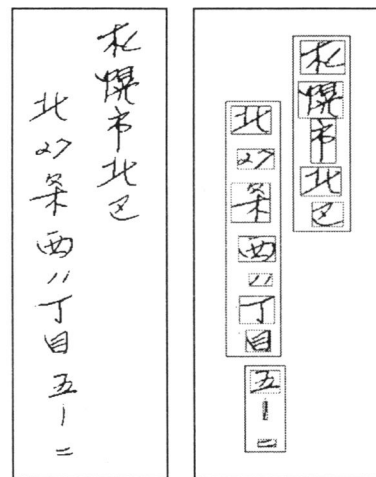 札幌市北区
北27条西11丁目五ー二
札幌市北区
北27条西11丁目
五ー二